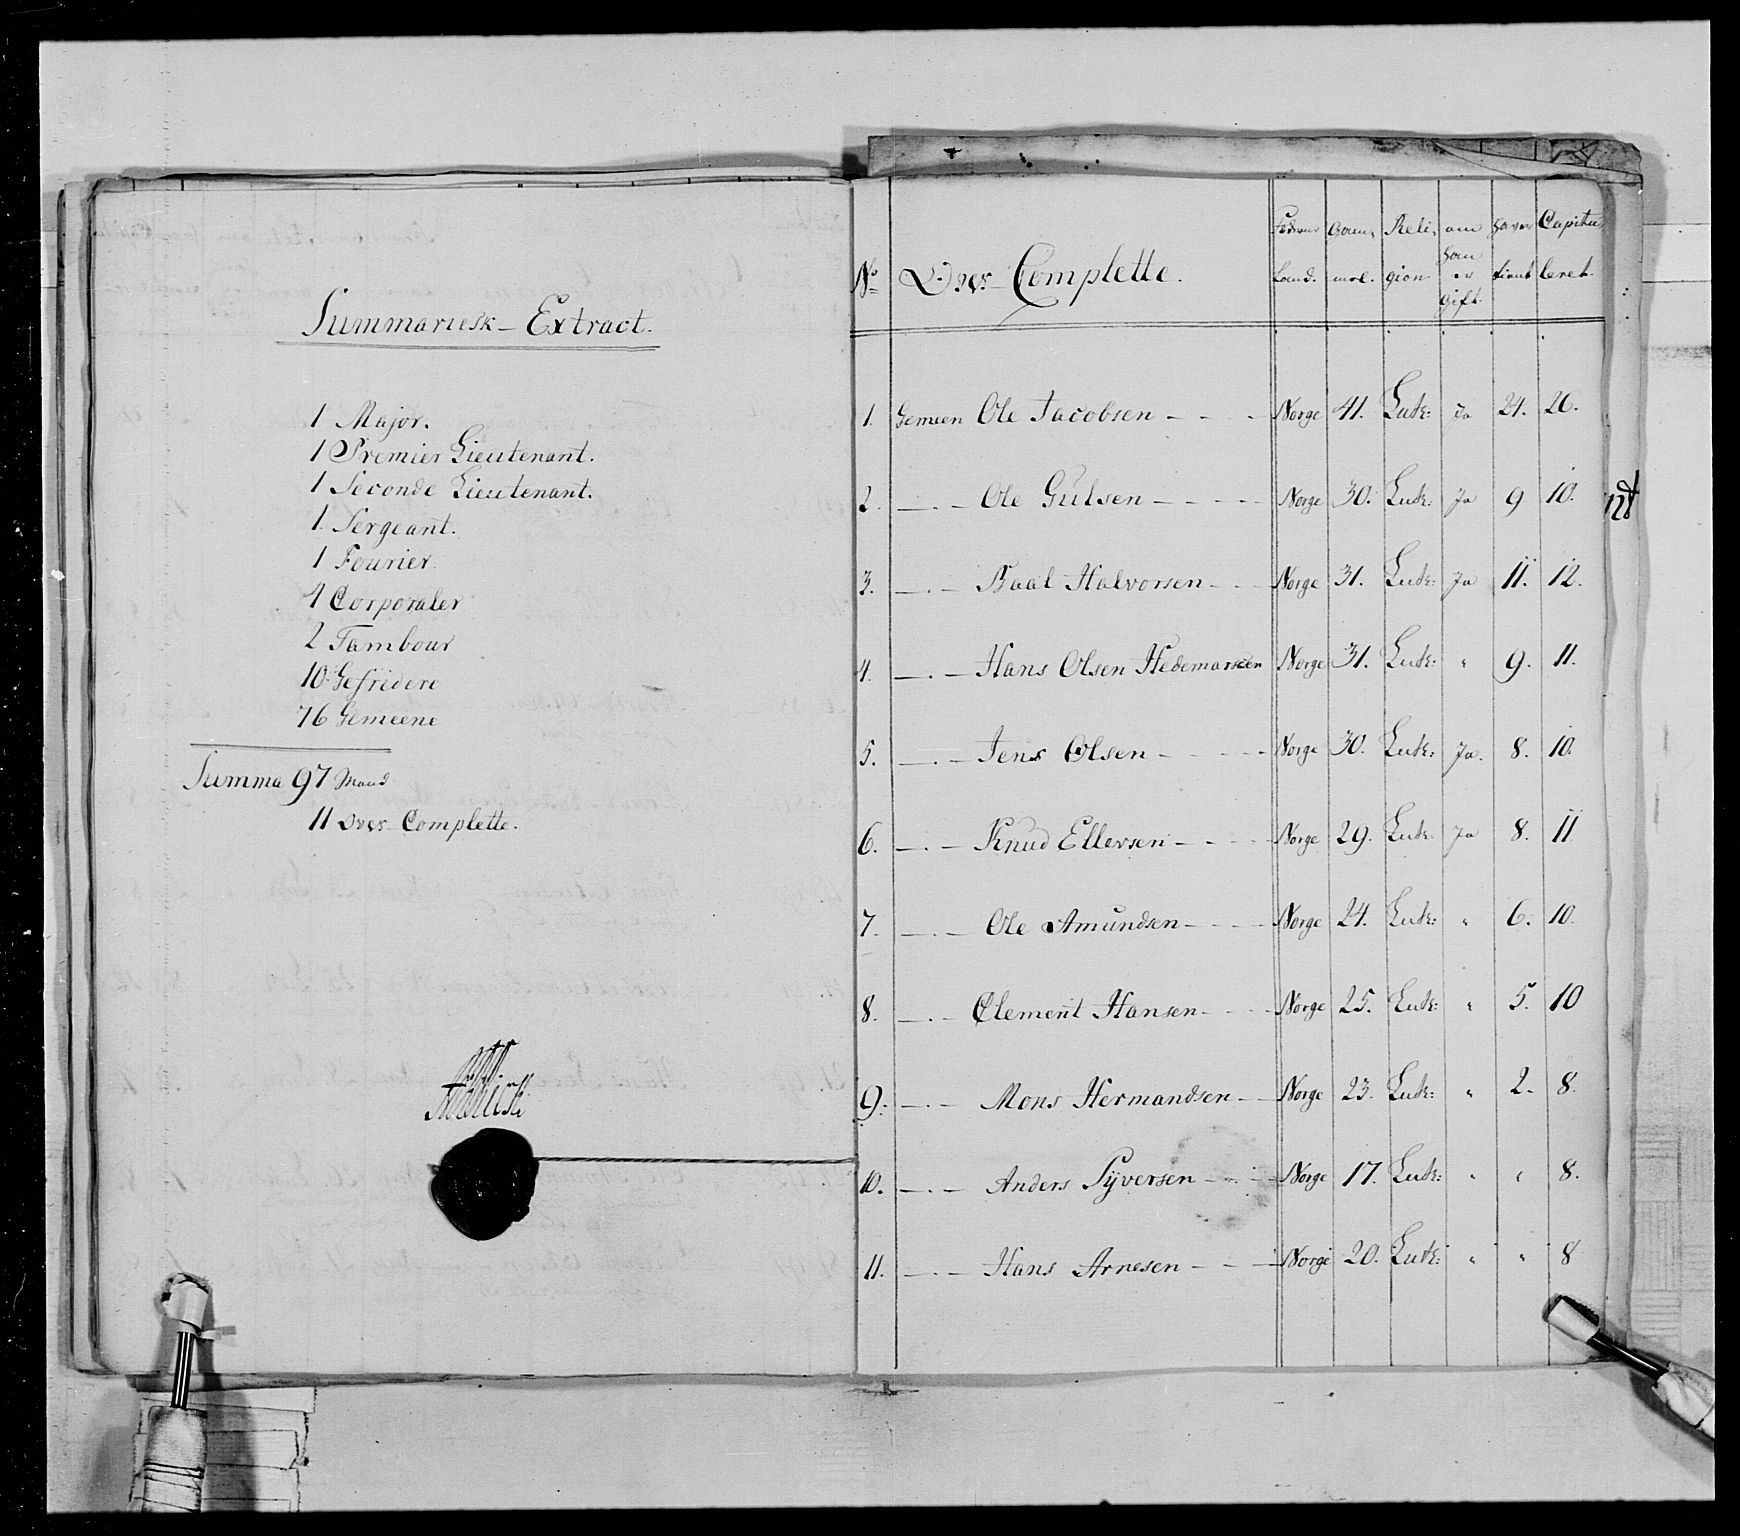 Summariesk – Extract.
1 Major.
1 Premier Lieutenant.
1 Seconde Lieutenant.
1 Sergeant.
1 Fourier
4 Corporaler
2 Tambour
10 Gefridere
76 Gemeene
Summa 97 Mand
11 Over Complette.
No Over Complette. Fødeland. Gammel. Religion om han er gift. haver tient Capituleret.
1. Gemeen Ole Jacobsen – – – – Norge 41. Luth: Ja 24. 26.
2. —.— Ole Gulsen – – – – Norge 30. Luth: Ja 9 10.
3. —.— Paal Halvorsen – – Norge 31. Luth: Ja 11. 12.
4. —.— Hans Olsen Hedemarken Norge 31. Luth: " 9. 11.
5. —.— Jens Olsen – – – – Norge 30. Luth: Ja. 8. 10.
6. —.— Knud Ellersen – – – – Norge 29. Luth: Ja 8. 11
7. —.— Ole Amundsen – – – – Norge 24. Luth: " 6. 10.
8. —.— Clement Hansen – – – Norge 25. Luth: " 5. 10
9. —.— Mons Hermandsen – – Norge 23. Luth: " 2. 8.
10. —.— Anders Syversen – – – Norge 17. Luth: " " 8.
11. —.— Hans Arnesen – – – Norge 20. Luth: " " 8